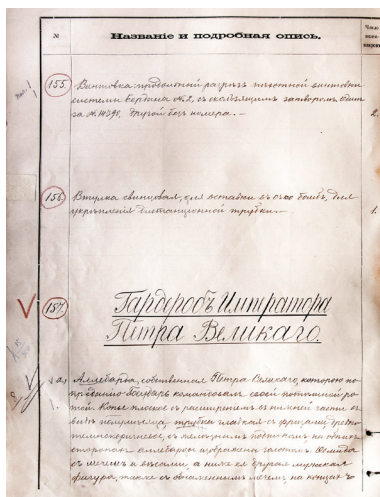 №
Названіе и подробная опись.
155. Винтовка продольный разрѣзъ пѣхотной винтовки
системы Бердана № 2, съ скользящимъ затворомъ, одна
за № 14391, другой безъ номера. —
2.
156. Втулка свинцовая, для вставки въ очко бомбъ, для
укрѣпленія дистанціонной трубки. —
1.
V
157. Гардеробъ Императора
Петра Великаго.
а) Аллебарда, собственная Петра Великаго, которою по
преданію Государь командовалъ своей потѣшной ро-
1. той. Копье плоское съ расширеніемъ въ нижней части въ
видѣ полумѣсяца, трубка гладкая съ
темнокоричневое, съ желѣзнымъ на одной
сторонѣ аллебарды изображена Ѳемида
съ мечемъ и вѣсами, а ниже ея другая мужская
фигура, также съ обнаженнымъ мечемъ, на концахъ